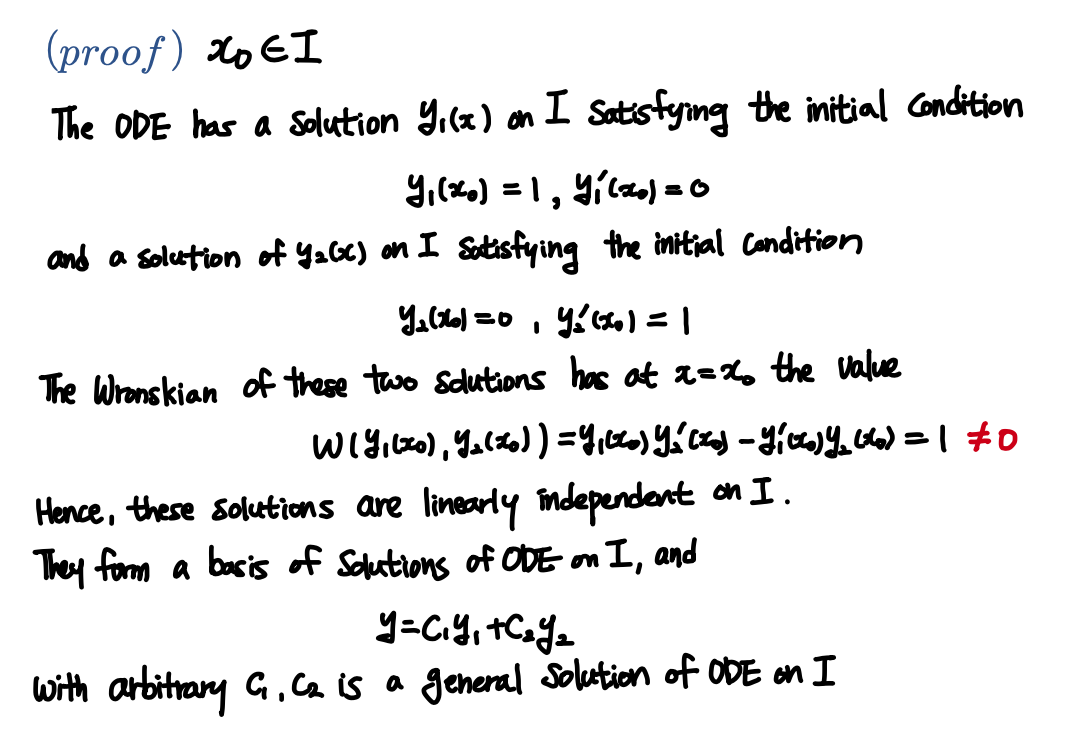 (proof) x₀ ∈ I
The ODE has a solution y₁(x) on I satisfying the initial condition
y₁(x₀) = 1, y₁′(x₀) = 0
and a solution of y₂(x) on I satisfying the initial condition
y₂(x₀) = 0, y₂′(x₀) = 1
The Wronskian of these two solutions has at x = x₀ the value
W(y₁(x₀), y₂(x₀)) = y₁(x₀)y₂′(x₀) - y₁′(x₀)y₂(x₀) = 1 ≠ 0
Hence, these solutions are linearly independent on I.
They form a basis of solutions of ODE on I, and
y = C₁y₁ + C₂y₂
with arbitrary C₁, C₂ is a general solution of ODE on I